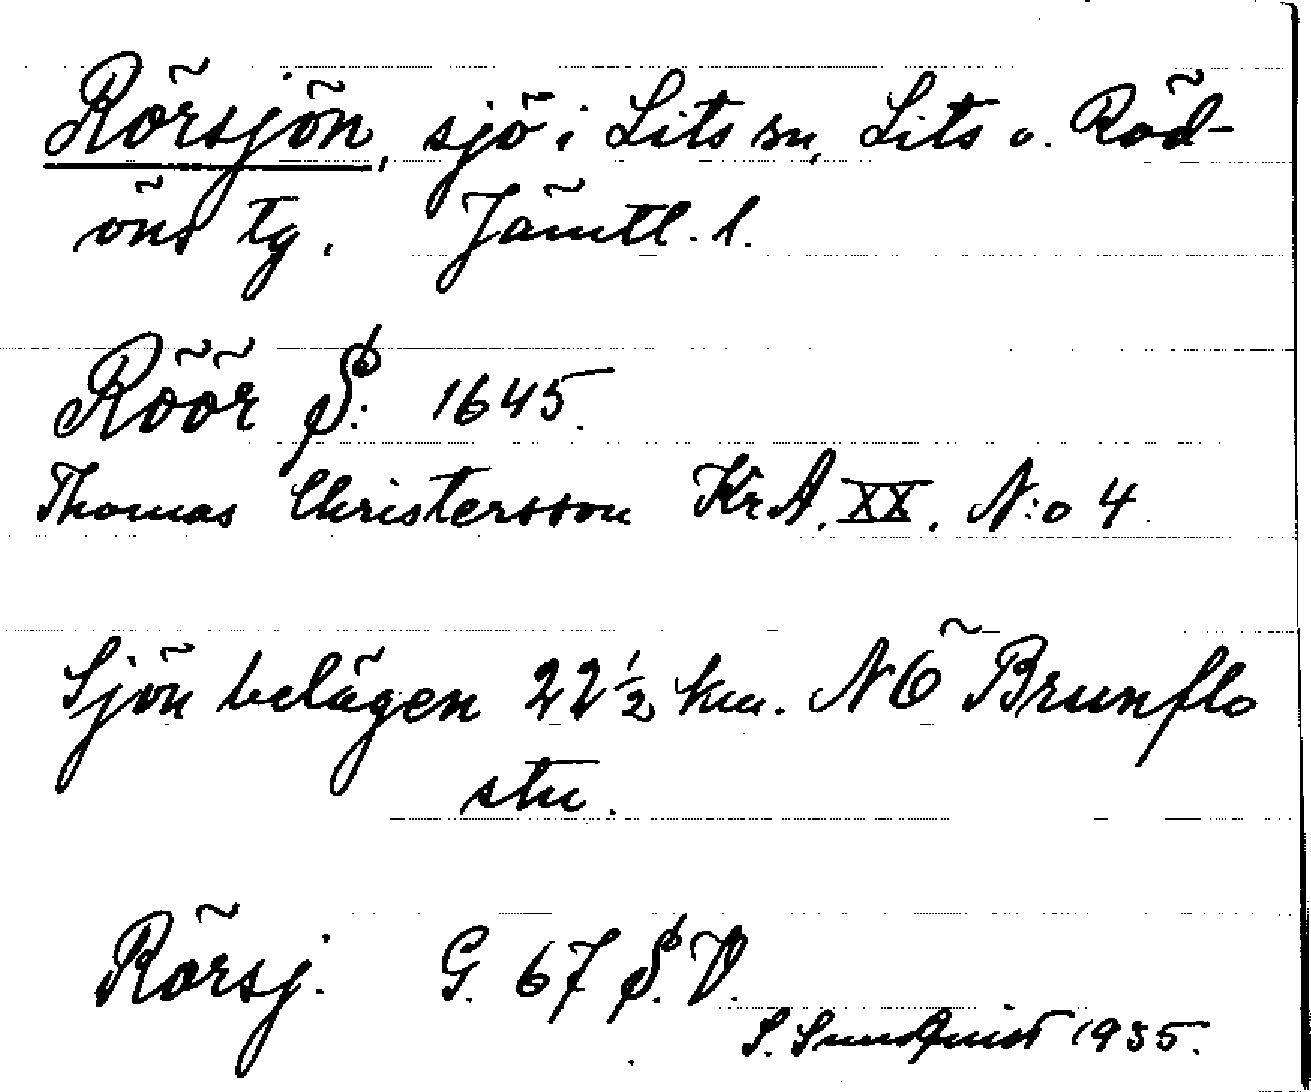 Rörsjön, sjö i Lits sn, Lits o. Röd-
öns tg. Jämtl. l.
Röör S: 1645.
Thomas Christersson Kr.A. XX. N:o 4.
Sjön belägen 22 1/2 km. NÖ Brunflo
stn.
Rörsj. G. 67 S.V.
S. Sundquist 1935.